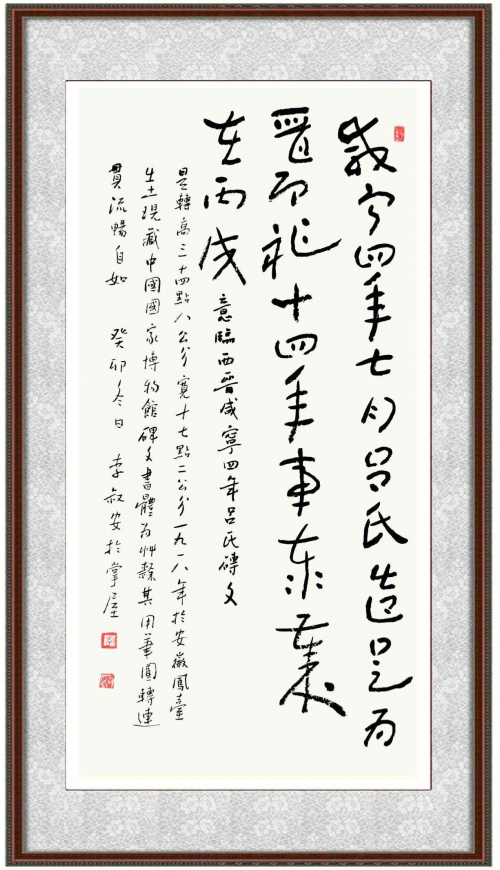 咸宁四年七月吕氏造是为
晋即祚十四年事泰歲
在丙戌 意臨西晋咸寧四年吕氏磚文
是磚高三十四點八公分寬十七點二公分一九一八年於安徽鳳臺
出土現藏中國國家博物館碑文書體为艸隸其用筆圓轉連
貫流暢自如 癸卯冬日 李叙安於掌屋